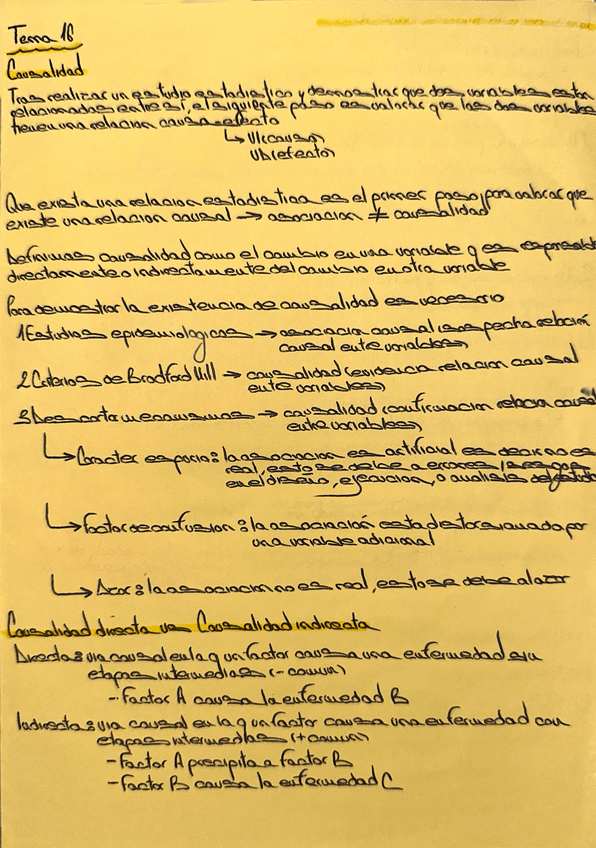 Tema 18
Causalidad
Tras realizar un estudio estadistico y demostrar que dos variables estan
relacionadas entre si, el siguiente paso es valorar que las dos variables
tienen una relacion causa-efecto
↳ VI(causa)
VD(efecto)
Que exista una relacion estadistica es el primer paso para valorar que
existe una relacion causal → asociacion ≠ causalidad
Definimos causalidad como el cambio en una variable q es responsable
directamente o indirectamente del cambio en otra variable
Para demostrar la existencia de causalidad es necesario
1Estudios epidemiologicos → asociacion causal (sospecha relación
causal entre variables)
2Criterios de Bradford Hill → causalidad (evidencia relacion causal
entre variables)
3Descarta mecanismos → causalidad (confirmacion relacion causal
entre variables)
↳ Caracter espurio: la asociacion es artificial es decir no es
real, esto se debe a errores/sesgos
en el diseño, ejecucion, o analisis del estudio
↳ Factor de confusion: la asociación esta distorsionada por
una variable adicional
↳ Azar: la asociacion no es real, esto se debe al azar
Causalidad directa vs Causalidad indirecta
Directa: via causal en la q un factor causa una enfermedad sin
etapas intermedias (- comun)
- Factor A causa la enfermedad B
Indirecta: via causal en la q un factor causa una enfermedad con
etapas intermedias (+ comun)
- Factor A precipita a Factor B
- Factor B causa la enfermedad C